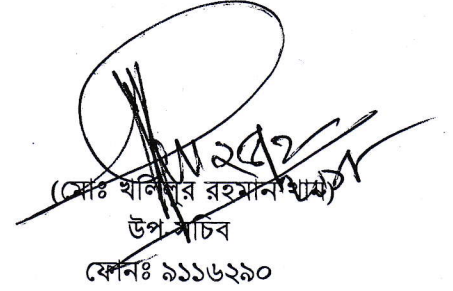 (মোঃ খলিলুর রহমান খান)
উপ সচিব
ফোনঃ ৯১১৬২৯০